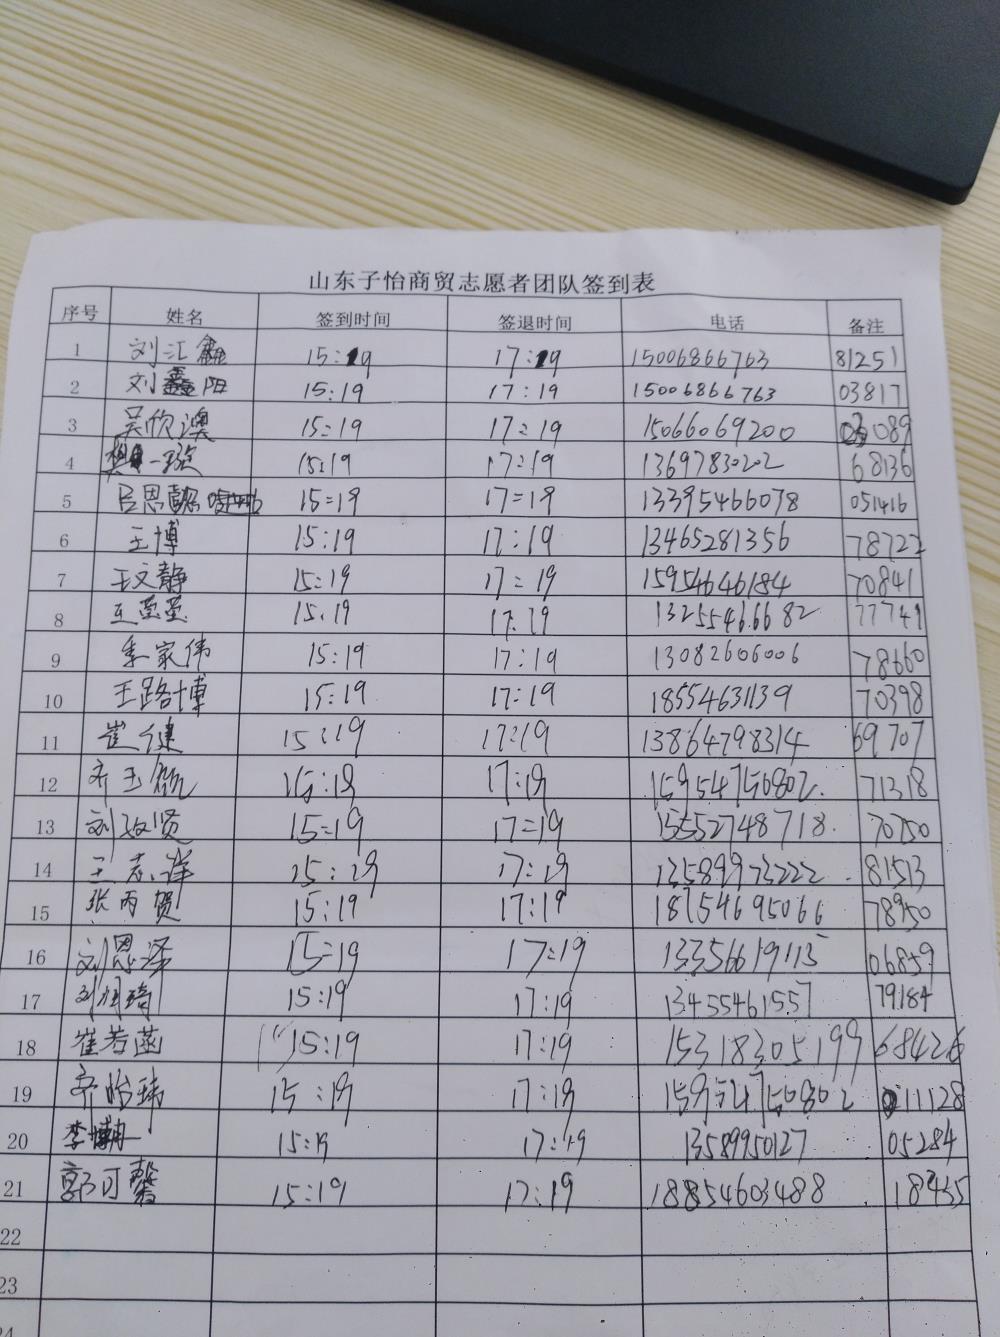 山东子怡商贸志愿者团队签到表
序号 姓名 签到时间 签退时间 电话 备注
1 刘汇鑫 15:19 17:19 15006866763 81251
2 刘鑫阳 15:19 17:19 15006866763 03817
3 吴欣澳 15:19 17:19 15066069200 089
4 一 15:19 17:19 13697830202 68136
5 吕思懿 15:19 17:19 13395466078 051416
6 王博 15:19 17:19 13465281356 78722
7 王文静 15:19 17:19 15954646184 70841
8 王莹莹 15:19 17:19 13255466682 77741
9 季家伟 15:19 17:19 13082606006 78660
10 王路博 15:19 17:19 18554631139 70398
11 崔健 15:19 17:19 13864798314 69707
12 齐玉 15:19 17:19 15954750802 71318
13 刘政贤 15:19 17:19 15552748718 70750
14 王志洋 15:19 17:19 13589973222 81513
15 张丙贺 15:19 17:19 18754695066 78950
16 刘恩泽 15:19 17:19 13356619115 06859
17 刘 琦 15:19 17:19 13455461557 79184
18 崔若菡 15:19 17:19 15318305199 68426
19 齐怡玮 15:19 17:19 15954750802 011128
20 李 15:19 17:19 13589950127 05284
21 郭可馨 15:19 17:19 18854603488 18435
22
23
24